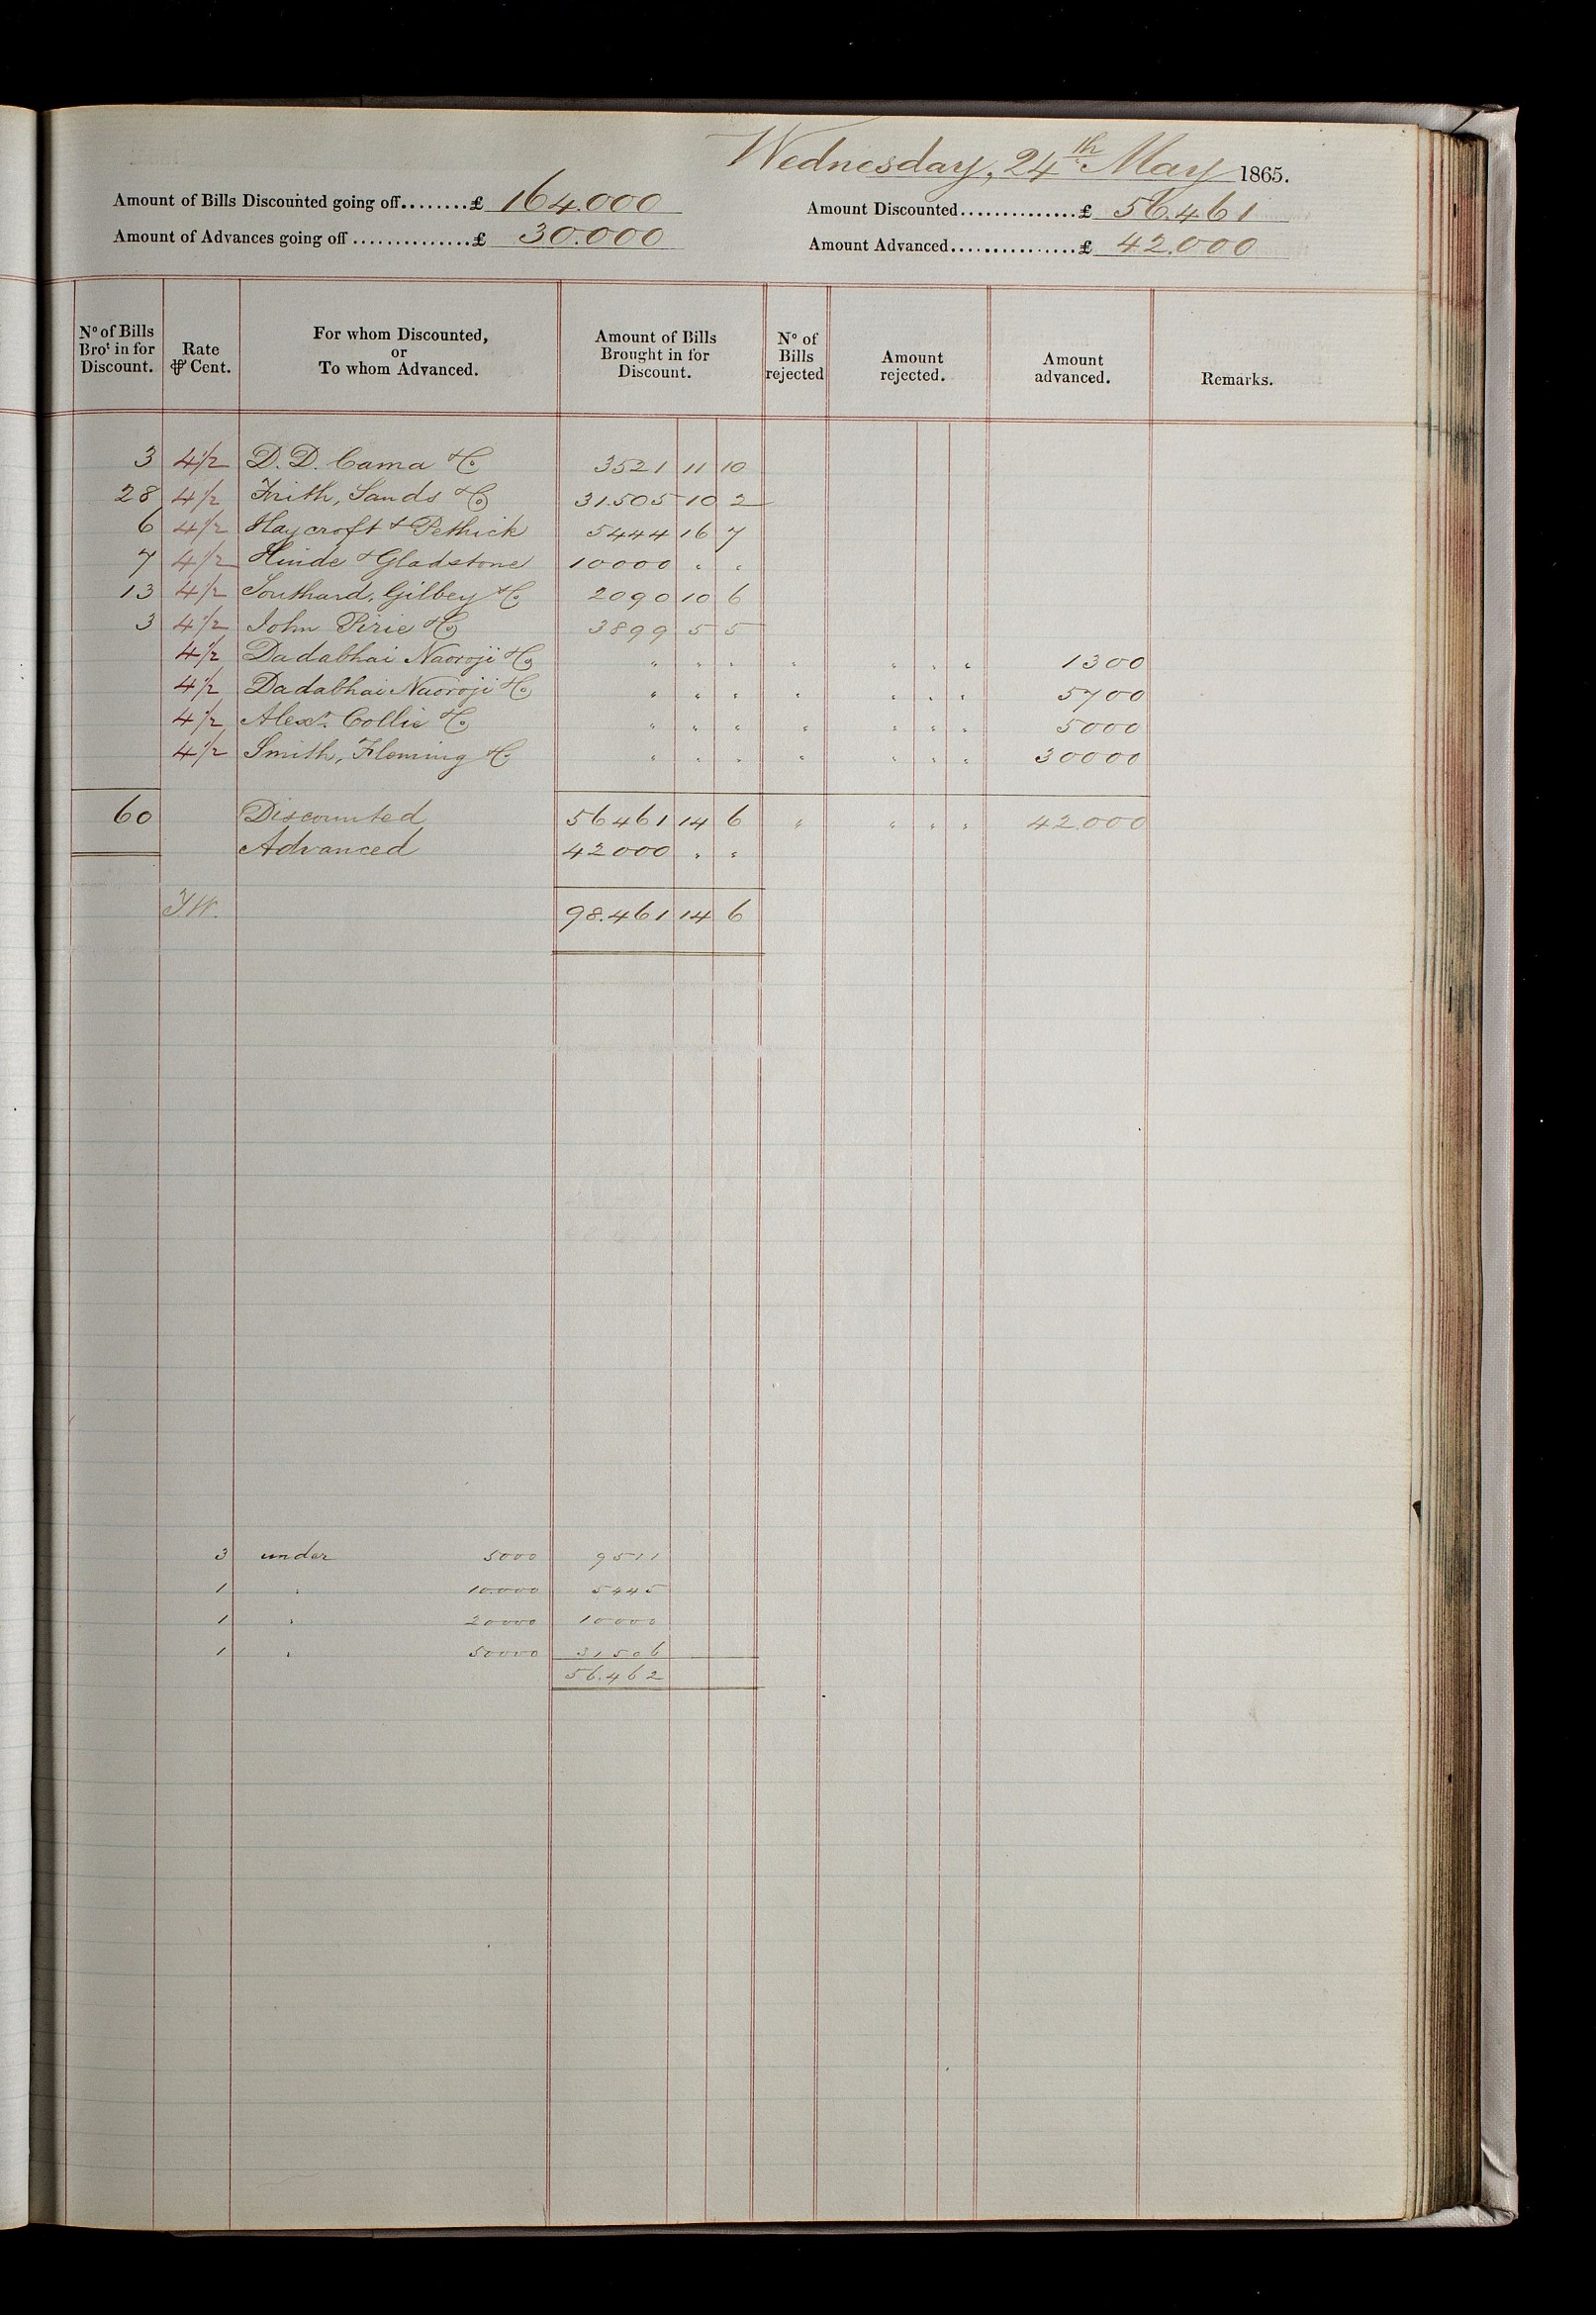 Wednesday, 24th May 1865.
Amount of Bills Discounted going off........£ 164.000
Amount Discounted..............£ 56.461
Amount of Advances going off...............£ 30.000
Amount Advanced...............£ 42.000
No of Bills Brot in for Discount. | Rate ⅌ Cent. | For whom Discounted, or To whom Advanced. | Amount of Bills Brought in for Discount. | No of Bills rejected | Amount rejected. | Amount advanced. | Remarks.
3 4½ D. D. Cama & Co 3521 11 10
28 4½ Frith, Sands & Co 31.505 10 2
6 4½ Haycroft & Pethick 5444 16 7
7 4½ Hinde & Gladstone 10000 " "
13 4½ Southard, Gilbey & Co 2090 10 6
3 4½ John Pirie & Co 3899 5 5
4½ Dadabhai Naoroji & Co " " " " " " " 1300
4½ Dadabhai Naoroji & Co " " " " " " 5700
4½ Alexr. Collie & Co " " " " " " " 5000
4½ Smith, Fleming & Co " " " " " " " 30000
60 Discounted 56461 14 6 " " " " 42.000
Advanced 42000 " "
98.461 14 6
3 under 5000 9511
1 " 10.000 5445
1 " 20000 10000
1 " 50000 31506
56.462